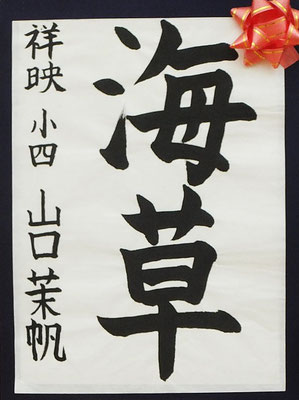 海草
祥映 小四 山口茉帆